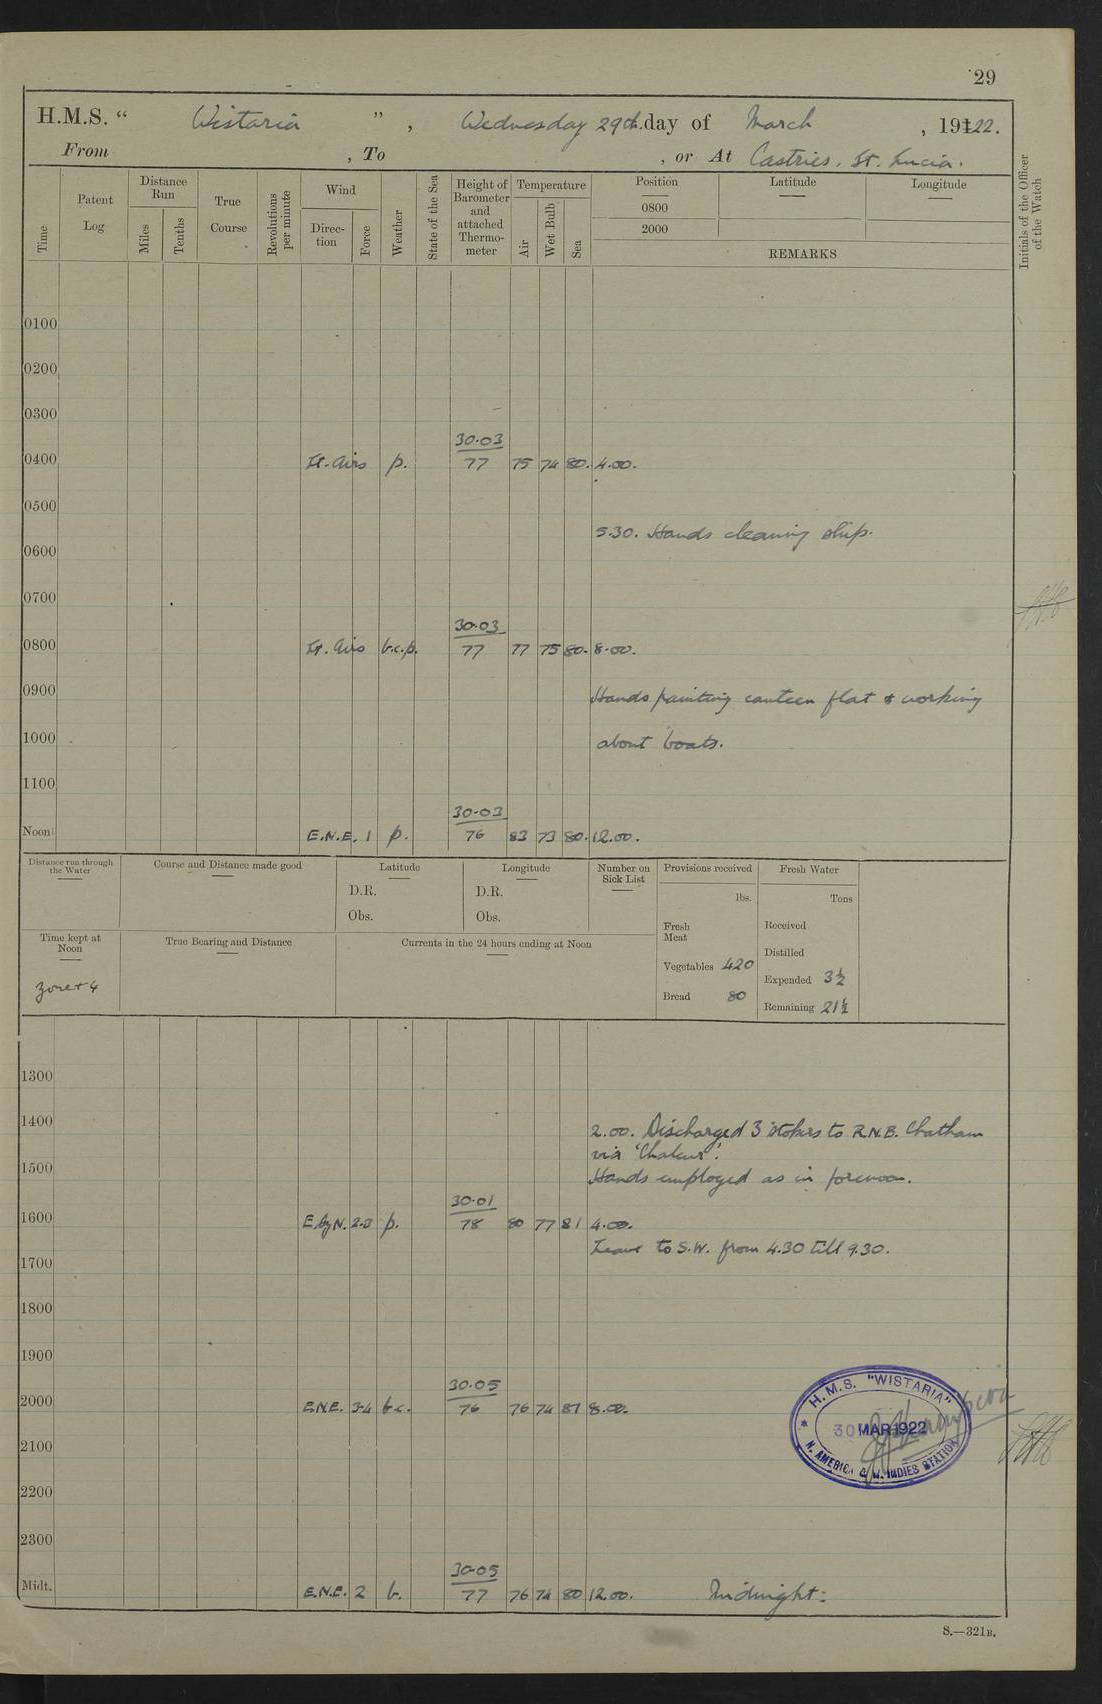 29
H.M.S. “ Wistaria ” , Wednesday 29th. day of March , 1922.
From , To , or At Castries. St. Lucia.
Time
Patent Log
Distance Run
Miles
Tenths
True Course
Revolutions per minute
Wind
Direction
Force
Weather
State of the Sea
Height of Barometer and attached Thermometer
Temperature
Air
Wet Bulb
Sea
Position
Latitude
Longitude
0800
2000
REMARKS
Initials of the Officer of the Watch
0100
0200
0300
30.03
0400 Lt. Airs p. 77 75 74 80. 4.00.
0500
5.30. Hands cleaning ship.
0600
0700
30.03
0800 Lt. Airs b.c.p. 77 77 75 80. 8.00.
0900 Hands painting canteen flat & working
1000 about boats.
1100
30.03
Noon E.N.E. 1 p. 76 83 73 80. 12.00.
Distance run through the Water
Course and Distance made good
Latitude
D.R.
Obs.
Longitude
D.R.
Obs.
Number on Sick List
Provisions received
lbs.
Fresh Meat
Vegetables 420
Bread 80
Fresh Water
Tons
Received
Distilled
Expended 3½
Remaining 21½
Time kept at Noon
zone+4
True Bearing and Distance
Currents in the 24 hours ending at Noon
1300
1400 2.00. Discharged 3 stokers to R.N.B. Chatham
via 'Chaleur'.
1500 Hands employed as in forenoon.
30.01
1600 E.byN. 2-3 p. 78 80 77 81 4.00.
Leave to S.W. from 4.30 till 9.30.
1700
1800
1900
30.05
2000 E.N.E. 3-4 b.c. 76 76 74 81 8.00.
H.M.S. "WISTARIA"
30 MAR 1922
N. AMERICA & W. INDIES STATION
2100
2200
2300
30.05
Midt. E.N.E. 2 b. 77 76 74 80 12.00. Midnight:
S.—321B.